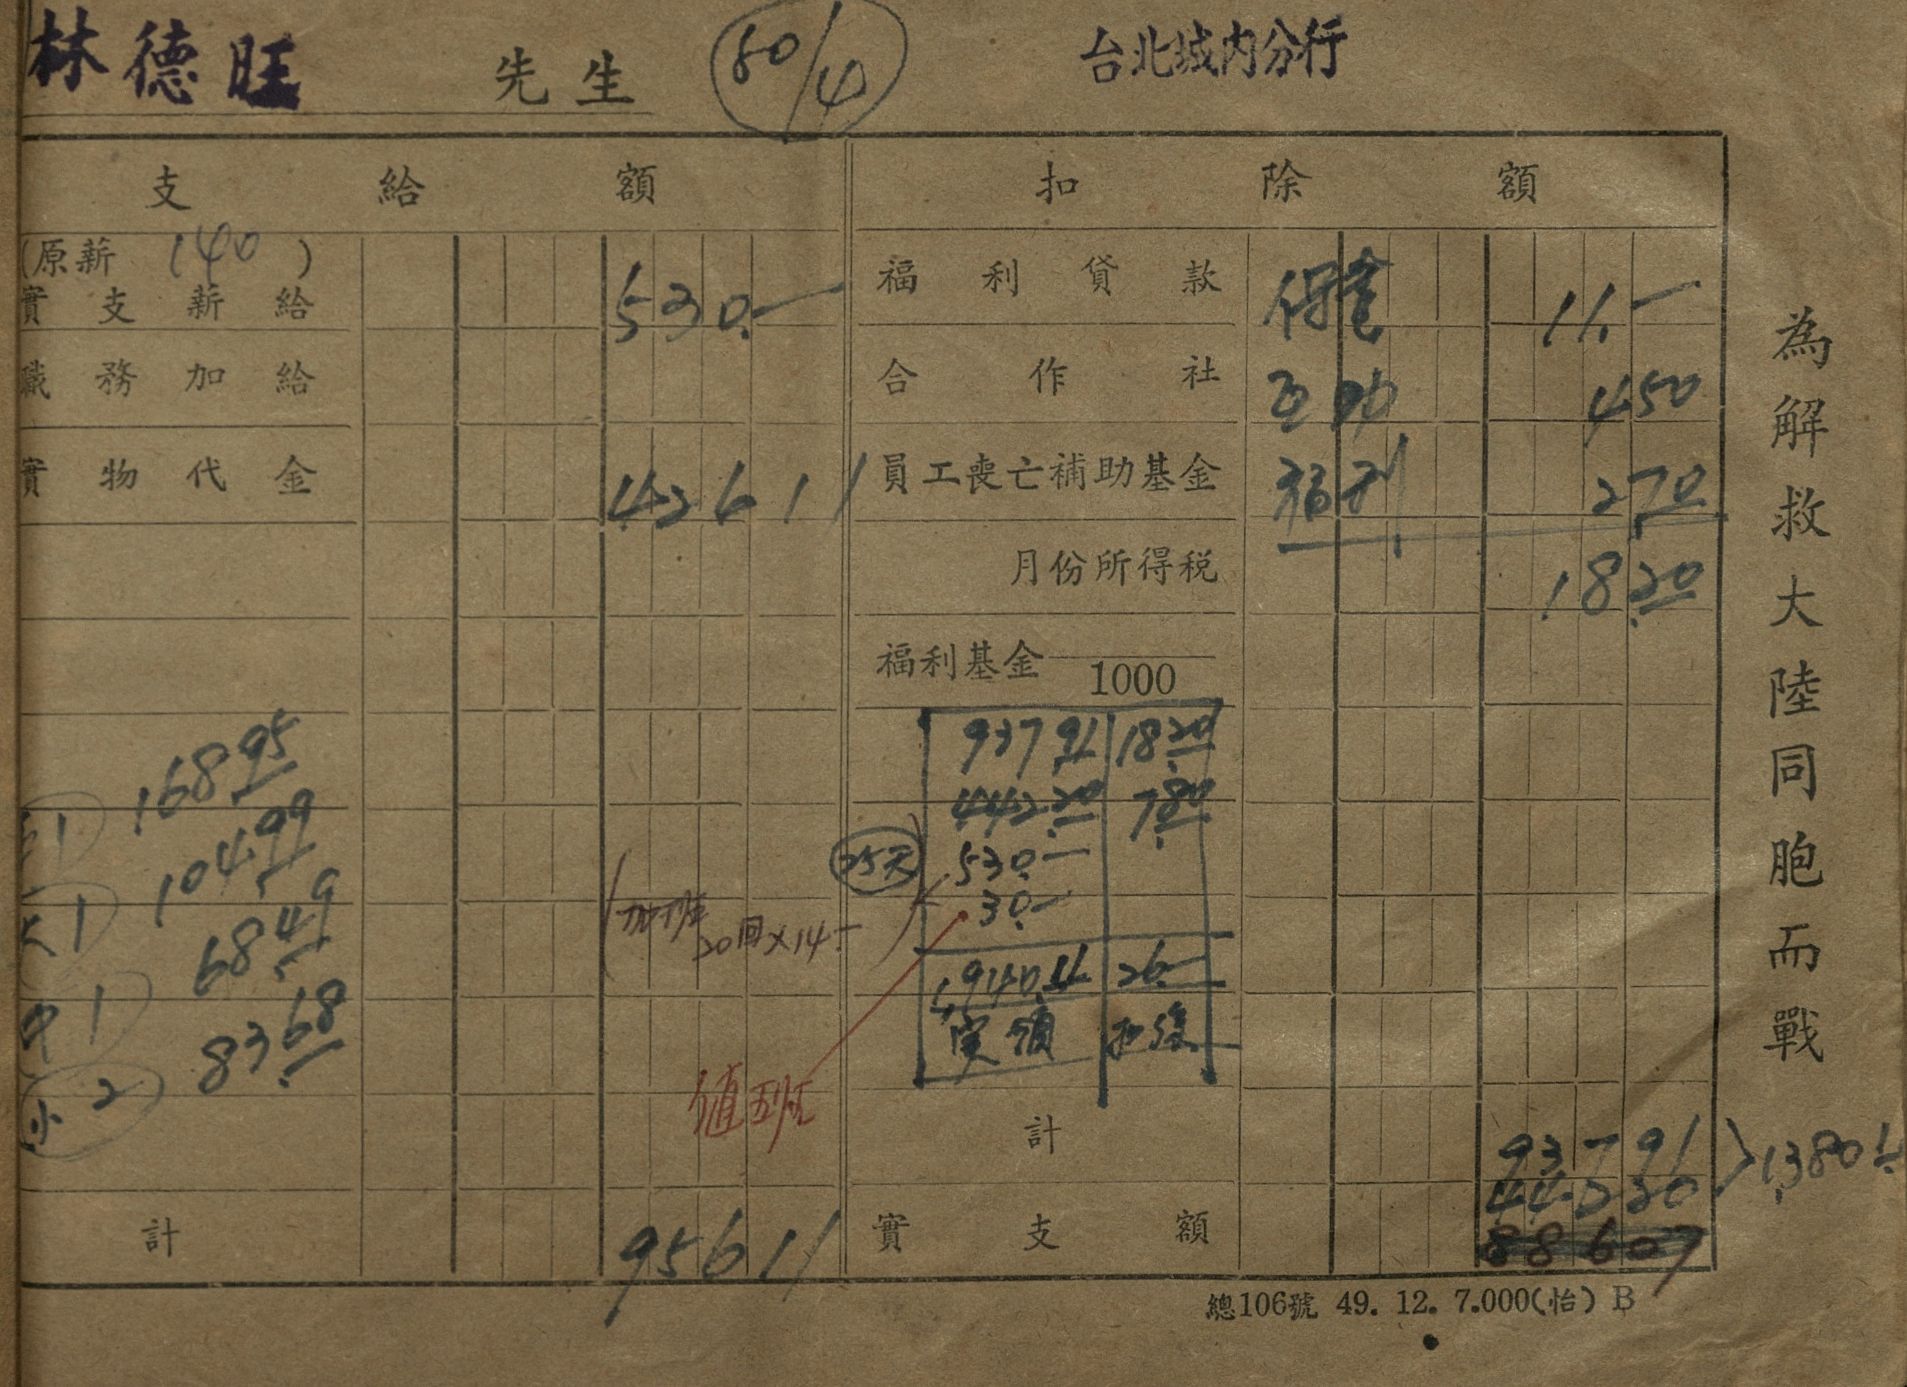 林德旺 先生 50/4 台北城內分行
支給額 扣除額
(原薪 140 )
實支薪給 530.— 福利貸款 11.—
職務加給 合作社 互助 450
實物代金 42611 員工喪亡補助基金 福利 270
月份所得稅 18.20
福利基金 1000
937.91 18.20
168.95 442.20 7.80
大1 104.99 25天 530.—
20回×14.— 30.—
中1 68.49 1,940.11 26.—
小2 83.68 実領 扣除
值班
計 93791
44220 1,380.11
計 95611 實支額 88607
總106號 49. 12. 7.000(怡) B
為解救大陸同胞而戰